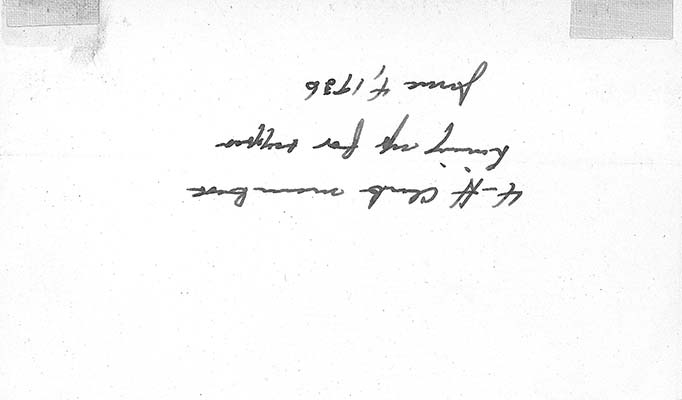 4-H Club members
lining up for supper
June 4, 1936